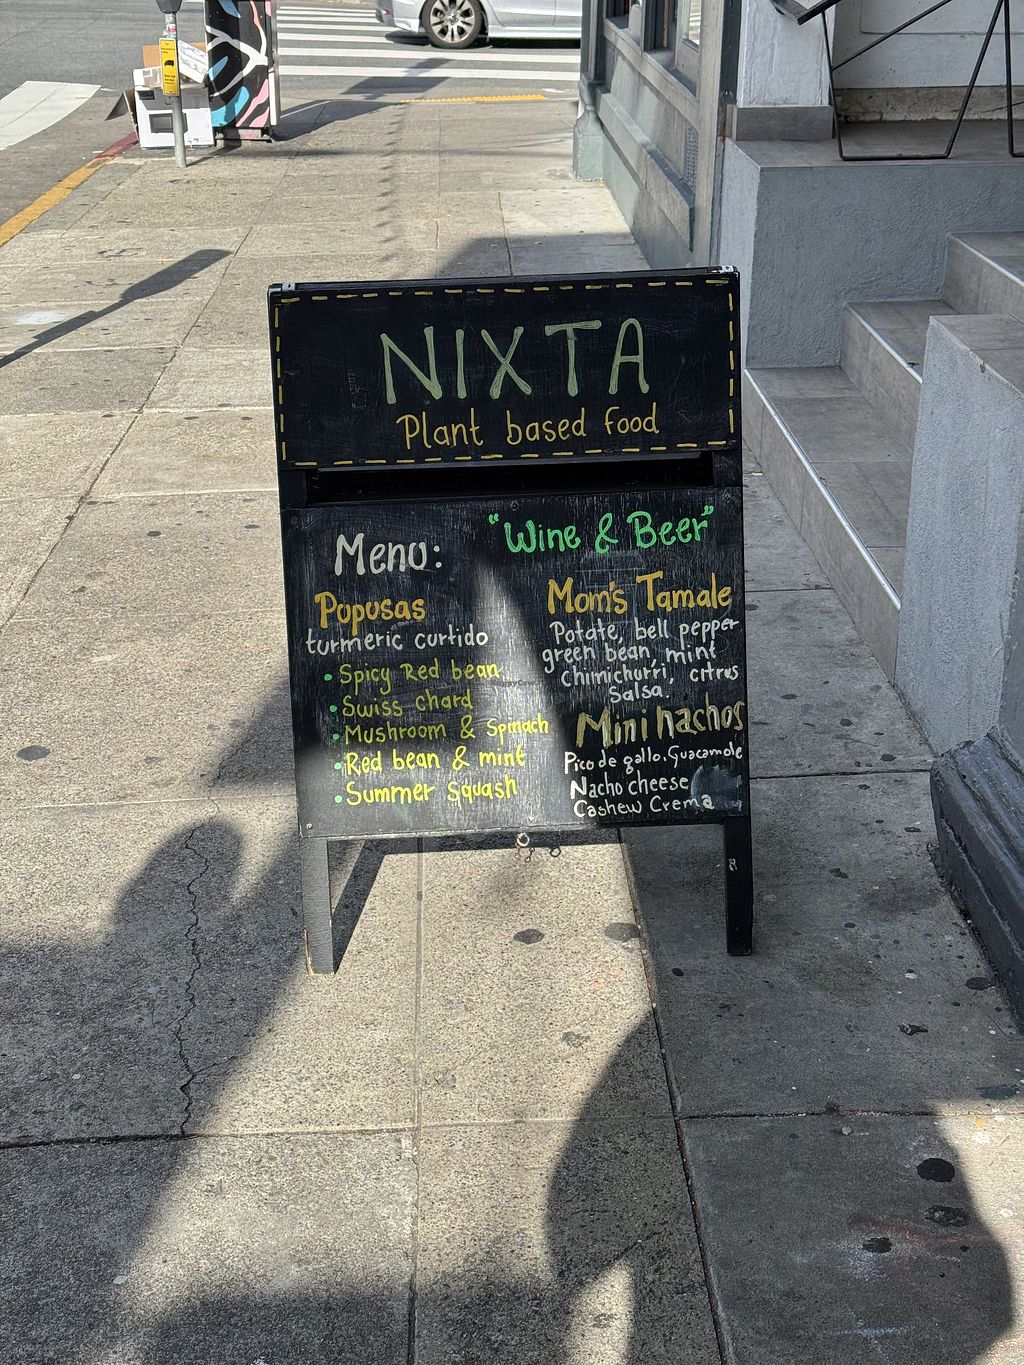 NIXTA
Plant based food
Menu:
Pupusas
turmeric curtido
• Spicy Red bean
• Swiss chard
• Mushroom & Spinach
• Red bean & mint
• Summer Squash
"Wine & Beer"
Mom's Tamale
Potate, bell pepper
green bean, mint
chimichurri, citrus
Salsa.
Mini nachos
Pico de gallo, Guacamole
Nacho cheese
Cashew Crema